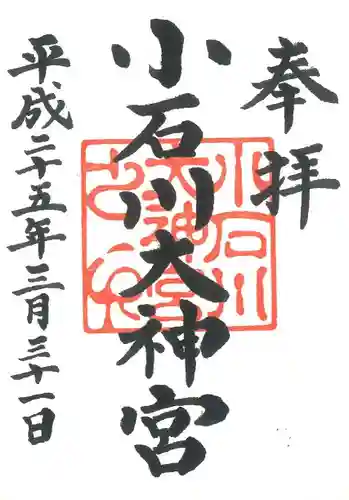 奉拝
小石川大神宮
平成二十五年三月三十一日
小石川
大神宮